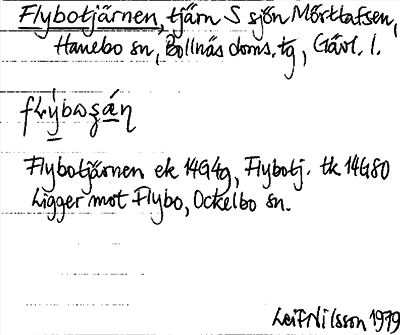 Flybotjärnen, tjärn S sjön Mörttafsen,
Hanebo sn, Bollnäs doms. tg, Gävl. l.
Flybotjärnen ek 14G4g, Flybotj. tk 14G80
Ligger mot Flybo, Ockelbo sn.
Leif Nilsson 1979